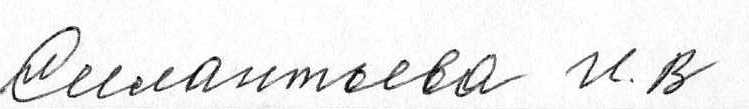 Силантьева И.В